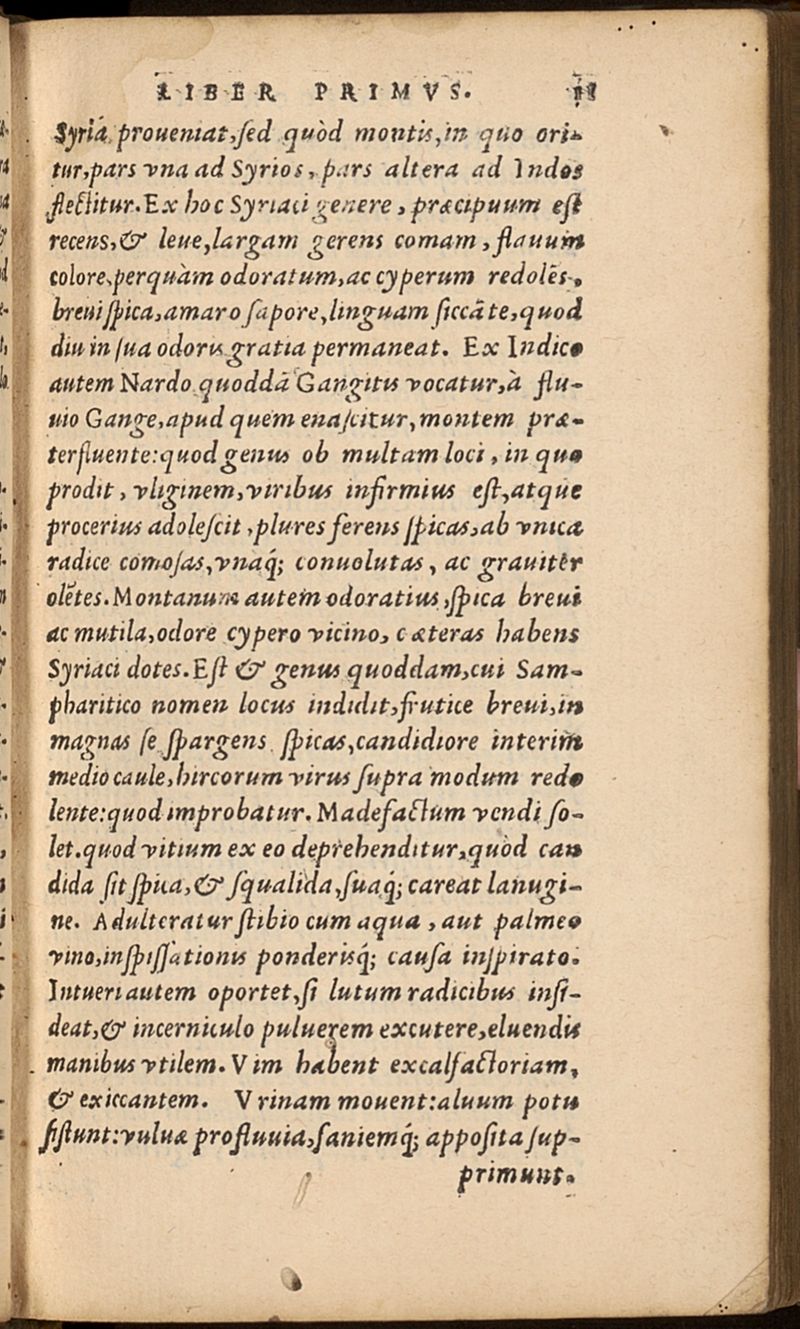 LIBER PRIMVS. 11
Syria proueniat, sed quòd montis, in quo ori-
tur, pars vna ad Syrios, pars altera ad Indos
flectitur. Ex hoc Syriaci genere, præcipuum est
recens, & leue, largam gerens comam, flauum
colore, perquàm odoratum, ac cyperum redolẽs,
breui spica, amaro sapore, linguam siccãte, quod
diu in sua odoris gratia permaneat. Ex Indico
autem Nardo quoddã Gangitis vocatur, à flu-
uio Gange, apud quem enascitur, montem præ-
terfluente: quod genus ob multam loci, in quo
prodit, vliginem, viribus infirmius est, atque
procerius adolescit, plures ferens spicas, ab vnica
radice comosas, vnaq́; conuolutas, ac grauitèr
olẽtes. Montanum autem odoratius, spica breui
ac mutila, odore cypero vicino, cæteras habens
Syriaci dotes. Est & genus quoddam, cui Sam-
pharitico nomen locus indidit, frutice breui, in
magnas se spargens spicas, candidiore interim
medio caule, hircorum virus supra modum redo
lente: quod improbatur. Madefactum vendi so-
let. quod vitium ex eo deprehenditur, quòd can
dida sit spica, & squalida, suaq́; careat lanugi-
ne. Adulteratur stibio cum aqua, aut palmeo
vino, inspissationis ponderisq́; causa inspirato.
Intueri autem oportet, si lutum radicibus insi-
deat, & incerniculo puluerem excutere, eluendis
manibus vtilem. Vim habent excalfactoriam,
& exiccantem. Vrinam mouent: aluum potu
sistunt: vuluæ profluuia, saniemq́; apposita sup-
primunt.